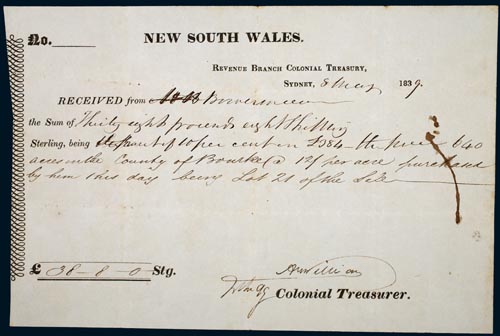 No.
NEW SOUTH WALES.
REVENUE BRANCH COLONIAL TREASURY,
SYDNEY, 8 May 1839.
RECEIVED from Bowerman
the Sum of Thirty eight pounds eight Shilling
Sterling, being of 10 per cent on £384 the price 640
acres in the County of Bourke @ 12/ per acre purchased
by him this day being Lot 21 of the Sale
£ 38-8-0 Stg.
Colonial Treasurer.